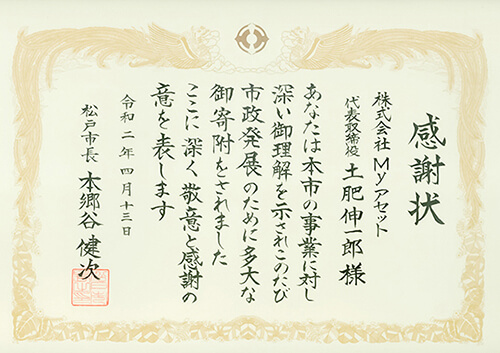 感謝状
株式会社 Myアセット
代表取締役 土肥伸一郎 様
あなたは本市の事業に対し
深い御理解を示されこのたび
市政発展のために多大な
御寄附をされました
ここに深く敬意と感謝の
意を表します
令和二年四月十三日
松戸市長 本郷谷健次